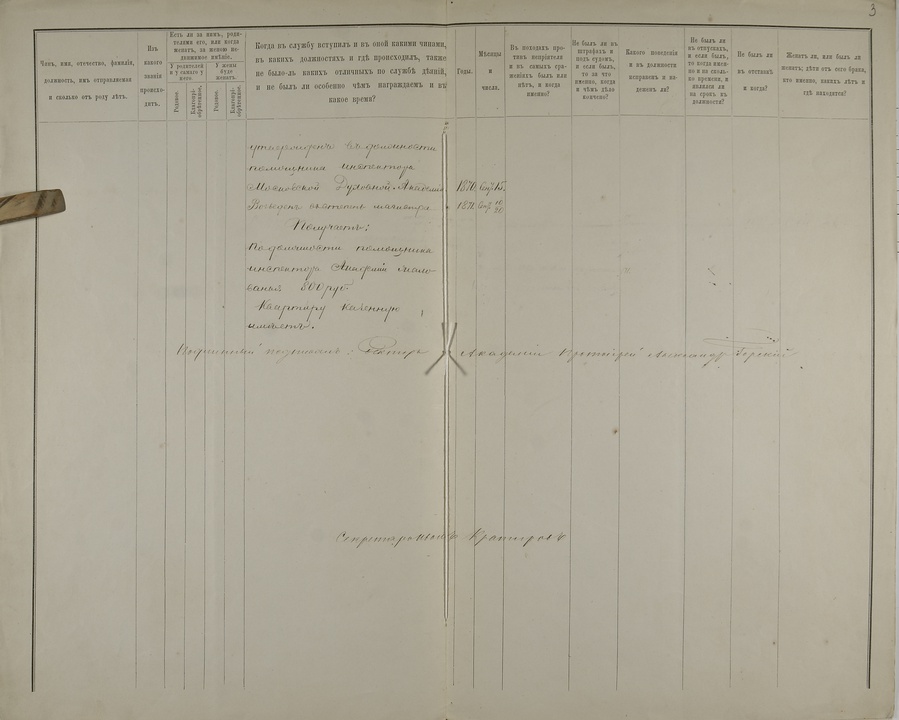 3
Чинъ, имя, отечество, фамилія,
должность, имъ отправляемая
и сколько отъ роду лѣтъ.
Изъ
какого
званія
происхо-
дитъ.
Есть ли за нимъ, роди-
телями его, или когда
женатъ, за женою не-
движимое имѣніе.
У родителей
и у самаго у
него.
У жены
буде
женатъ.
Родовое.
Благопрі-
обрѣтенное.
Родовое.
Благопрі-
обрѣтенное.
Когда въ службу вступилъ и въ оной какими чинами,
въ какихъ должностяхъ и гдѣ происходилъ, также
не было-ль какихъ отличныхъ по службѣ дѣяній,
и не былъ ли особенно чѣмъ награждаемъ и въ
какое время?
Годы.
Мѣсяцы
и
числа.
Въ походахъ про-
тивъ непріятеля
и въ самыхъ сра-
женіяхъ былъ или
нѣтъ, и когда
именно?
Не былъ ли въ
штрафахъ и
подъ судомъ,
и если былъ,
то за что
именно, когда
и чѣмъ дѣло
кончено?
Какого поведенія
и въ должности
исправенъ и на-
деженъ ли?
Не былъ ли
въ отпускахъ,
и если былъ,
то когда имен-
но и на сколь-
ко времени, и
являлся ли
на срокъ къ
должности?
Не былъ ли
въ отставкѣ
и когда?
Женатъ ли, или былъ ли
женатъ; дѣти отъ сего брака,
кто именно, какихъ лѣтъ и
гдѣ находятся?
утвержденъ въ должности
помощника инспектора
Московской Духовной Академіи 1870 15.
Возведенъ на степень магистра 1871
Получаетъ:
По должности помощника
инспектора Академіи жало-
ванья 800 руб.
Квартиру казенную
имѣетъ.
Подлинный подписалъ: Ректоръ Академіи Протоіерей Александръ Горскій
Секретарь